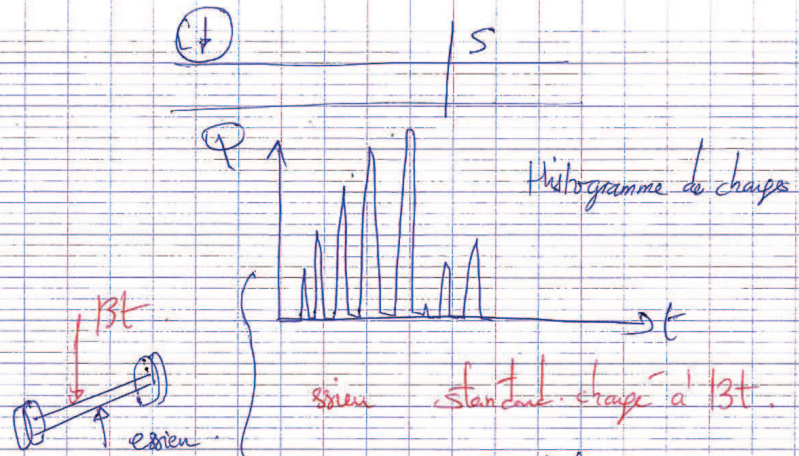 S
P
Histogramme de charges
t
13t
ssieu standard chargé à 13t.
essieu.